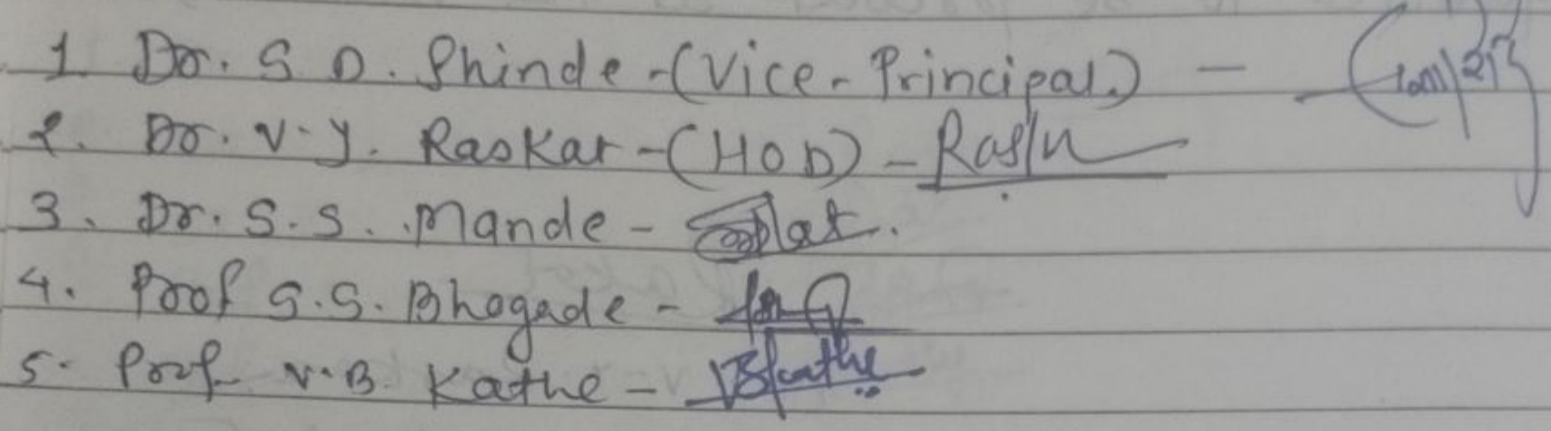 1. Dr. S. D. Shinde - (Vice-Principal) -
2. Dr. V. Y. Raskar - (HOD) -
3. Dr. S. S. Mande -
4. Prof S. S. Bhogade -
5. Prof. V. B. Kathe - VBKathe